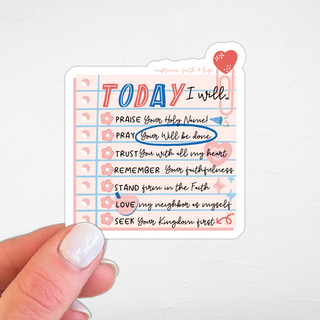 inspired faith & life
TODAY I will..
PRAISE Your Holy Name!
PRAY Your Will be done
TRUST You with all my heart
REMEMBER Your faithfulness
STAND firm in the Faith
LOVE my neighbor as myself
SEEK Your Kingdom first